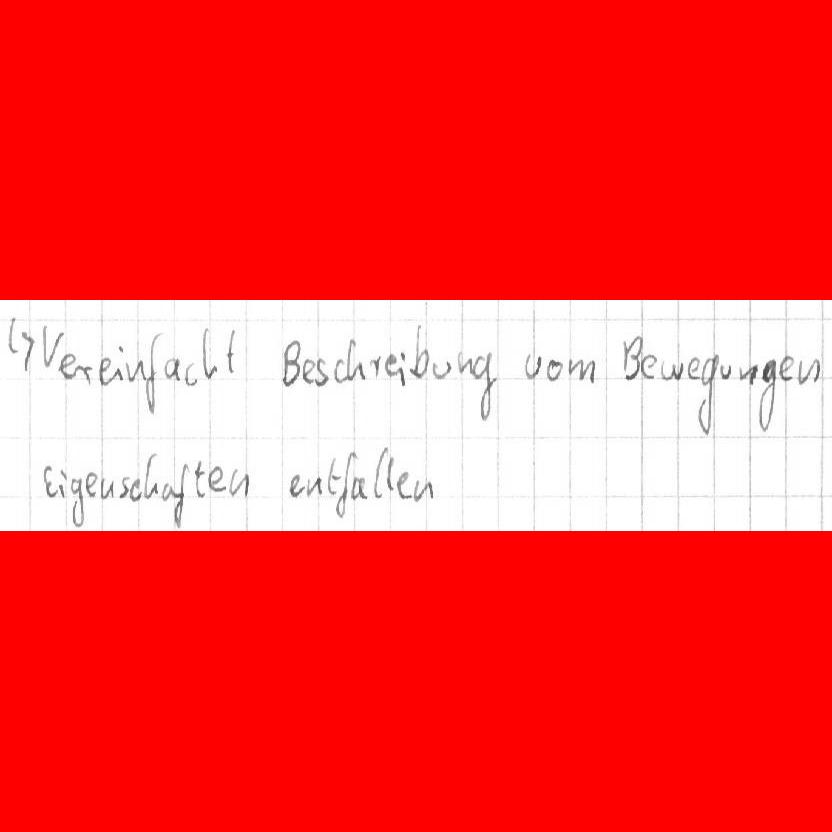 ↳ Vereinfacht Beschreibung vom Bewegungen
Eigenschaften entfallen